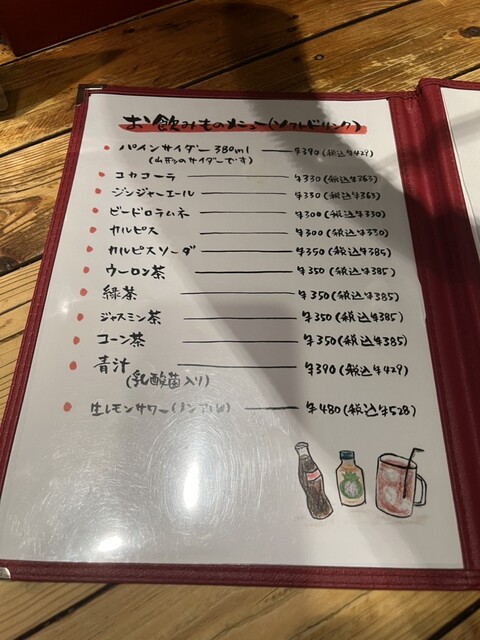 お飲みものメニュー(ソフトドリンク)
パインサイダー 380ml ¥390(税込¥429)
(山形のサイダーです)
コカコーラ ¥330(税込¥363)
ジンジャーエール ¥330(税込¥363)
ビードロラムネ ¥300(税込¥330)
カルピス ¥300(税込¥330)
カルピスソーダ ¥350(税込¥385)
ウーロン茶 ¥350(税込¥385)
緑茶 ¥350(税込¥385)
ジャスミン茶 ¥350(税込¥385)
コーン茶 ¥350(税込¥385)
青汁 ¥390(税込¥429)
(乳酸菌入り)
生レモンサワー(ノンアル) ¥480(税込¥528)